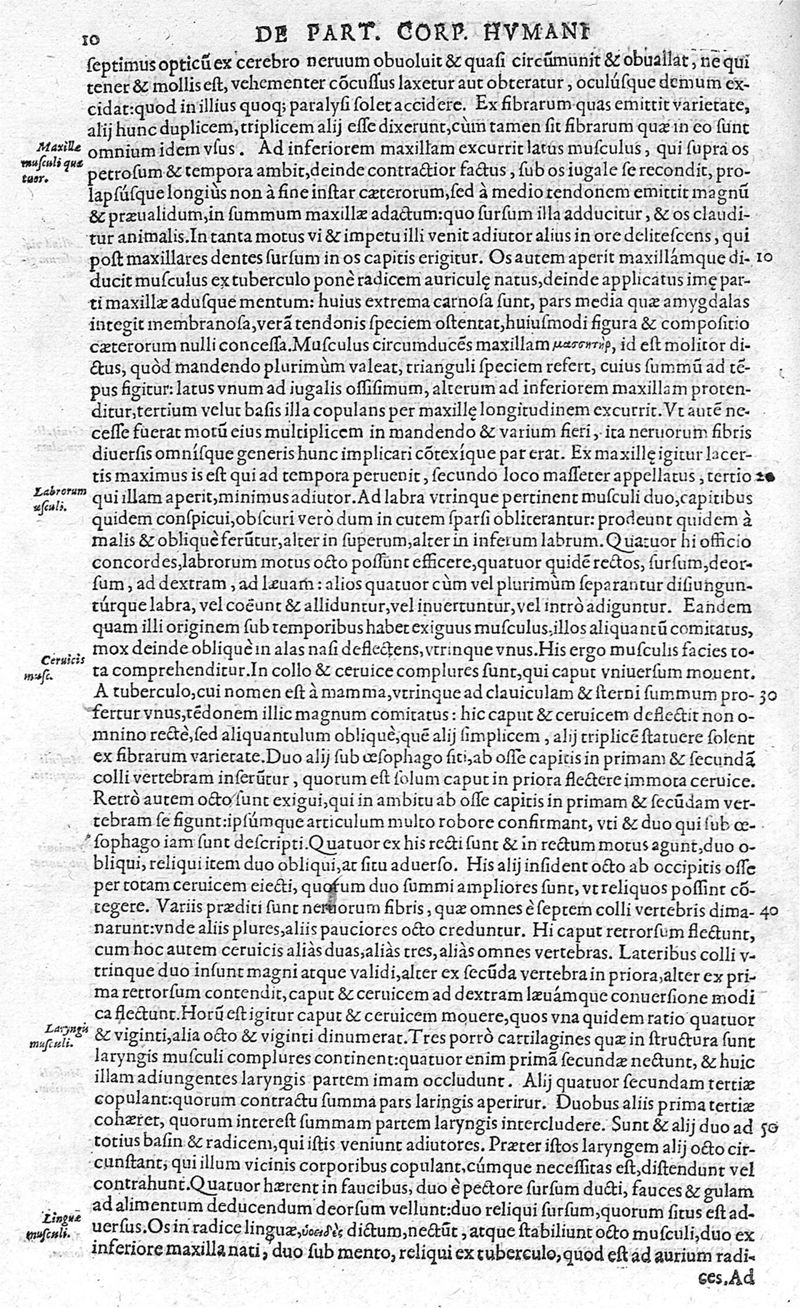 10 DE PART. CORP. HVMANI
septimus opticũ ex cerebro neruum obuoluit & quasi circũmunit & obuallat, ne qui
tener & mollis est, vehementer cõcussus laxetur aut obteratur, oculúsque demum ex-
cidat:quod in illius quoq; paralysi solet accidere. Ex fibrarum quas emittit varietate,
alij hunc duplicem, triplicem alij esse dixerunt, cùm tamen sit fibrarum quæ in eo sunt
Maxillæ
musculi qua
tuor.
omnium idem vsus. Ad inferiorem maxillam excurrit latus musculus, qui supra os
petrosum & tempora ambit, deinde contractior factus, sub os iugale se recondit, pro-
lapsúsque longiùs non à fine instar cæterorum, sed à medio tendonem emittit magnũ
& præualidum, in summum maxillæ adactum:quo sursum illa adducitur, & os claudi-
tur animalis. In tanta motus vi & impetu illi venit adiutor alius in ore delitescens, qui
post maxillares dentes sursum in os capitis erigitur. Os autem aperit maxillámque di- 10
ducit musculus ex tuberculo ponè radicem auriculę natus, deinde applicatus imę par-
ti maxillæ adusque mentum: huius extrema carnosa sunt, pars media quæ amygdalas
integit membranosa, verã tendonis speciem ostentat, huiusmodi figura & compositio
cæterorum nulli concessa. Musculus circumducẽs maxillam μασσητὴρ, id est molitor di-
ctus, quòd mandendo plurimùm valeat, trianguli speciem refert, cuius summũ ad tẽ-
pus figitur: latus vnum ad iugalis ossis imum, alterum ad inferiorem maxillam proten-
ditur, tertium velut basis illa copulans per maxillę longitudinem excurrit. Vt autẽ ne-
cesse fuerat motũ eius multiplicem in mandendo & varium fieri, ita neruorum fibris
diuersis omnísque generis hunc implicari cõtexique par erat. Ex maxillę igitur lacer-
tis maximus is est qui ad tempora peruenit, secundo loco masseter appellatus, tertio 20
Labrorum
usculi.
qui illam aperit, minimus adiutor. Ad labra vtrinque pertinent musculi duo, capitibus
quidem conspicui, obscuri verò dum in cutem sparsi obliterantur: prodeunt quidem à
malis & obliquè ferũtur, alter in superum, alter in inferum labrum. Quatuor hi officio
concordes, labrorum motus octo possunt efficere, quatuor quidẽ rectos, sursum, deor-
sum, ad dextram, ad læuam: alios quatuor cùm vel plurimùm separantur disiungun-
túrque labra, vel coëunt & alliduntur, vel inuertuntur, vel intrò adiguntur. Eandem
quam illi originem sub temporibus habet exiguus musculus, illos aliquantũ comitatus,
mox deinde obliquè in alas nasi deflectens, vtrinque vnus. His ergo musculis facies to-
Ceruicis
musc.
ta comprehenditur. In collo & ceruice complures sunt, qui caput vniuersum mouent.
A tuberculo, cui nomen est à mamma, vtrinque ad clauiculam & sterni summum pro- 30
fertur vnus, tẽdonem illic magnum comitatus: hic caput & ceruicem deflectit non o-
mnino rectè, sed aliquantulum obliquè, quẽ alij simplicem, alij triplicẽ statuere solent
ex fibrarum varietate. Duo alij sub œsophago siti, ab osse capitis in primam & secundã
colli vertebram inserũtur, quorum est solum caput in priora flectere immota ceruice.
Retrò autem octo sunt exigui, qui in ambitu ab osse capitis in primam & secũdam ver-
tebram se figunt: ipsúmque articulum multo robore confirmant, vti & duo qui sub œ-
sophago iam sunt descripti. Quatuor ex his recti sunt & in rectum motus agunt, duo o-
bliqui, reliqui item duo obliqui, at situ aduerso. His alij insident octo ab occipitis osse
per totam ceruicem eiecti, quorum duo summi ampliores sunt, vt reliquos possint cõ-
tegere. Variis præditi sunt neruorum fibris, quæ omnes è septem colli vertebris dima- 40
narunt: vnde aliis plures, aliis pauciores octo creduntur. Hi caput retrorsum flectunt,
cum hoc autem ceruicis aliàs duas, aliàs tres, aliàs omnes vertebras. Lateribus colli v-
trinque duo insunt magni atque validi, alter ex secũda vertebra in priora, alter ex pri-
ma retrorsum contendit, caput & ceruicem ad dextram læuámque conuersione modi
ca flectunt. Horũ est igitur caput & ceruicem mouere, quos vna quidem ratio quatuor
Laryngis
musculi.
& viginti, alia octo & viginti dinumerat. Tres porrò cartilagines quæ in structura sunt
laryngis musculi complures continent: quatuor enim primã secundæ nectunt, & huic
illam adiungentes laryngis partem imam occludunt. Alij quatuor secundam tertiæ
copulant: quorum contractu summa pars laringis aperirur. Duobus aliis prima tertiæ
cohæret, quorum interest summam partem laryngis intercludere. Sunt & alij duo ad 50
totius basin & radicem, qui istis veniunt adiutores. Præter istos laryngem alij octo cir-
cunstant, qui illum vicinis corporibus copulant, cúmque necessitas est, distendunt vel
contrahunt. Quatuor hærent in faucibus, duo è pectore sursum ducti, fauces & gulam
ad alimentum deducendum deorsum vellunt: duo reliqui sursum, quorum situs est ad-
Linguæ
musculi.
uersus. Os in radice linguæ, ὑοειδὲς dictum, nectũt, atque stabiliunt octo musculi, duo ex
inferiore maxilla nati, duo sub mento, reliqui ex tuberculo, quod est ad aurium radi-
ces. Ad